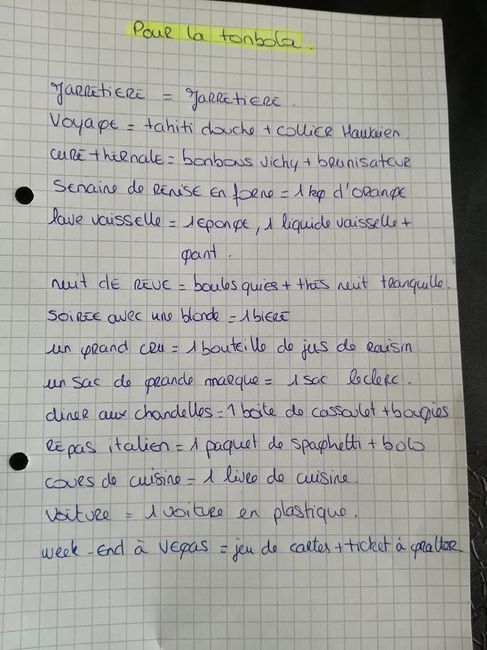 Pour la tonbola.
JARRETIERE = JARRETIERE.
Voyage = tahiti douche + collier Hawaien.
cure thernale = bonbons vichy + brunisateur
Senaine de REMISE en forne = 1 kg d'orange
lave vaisselle = 1 eponge, 1 liquide vaisselle +
gant.
nuit de REVE = boules quies + thés nuit tranquille.
SOIRÉE avec une blonde = 1 BIERE
un grand cru = 1 bouteille de jus de raisin
un sac de grande marque = 1 sac leclerc.
diner aux chandelles = 1 boite de cassoulot + bougies
REpas italien = 1 paquet de spaghetti + bolo
cours de cuisine = 1 livre de cuisine.
voiture = 1 voiture en plastique.
week-End à VEgas = jeu de cartes + ticket à gratter